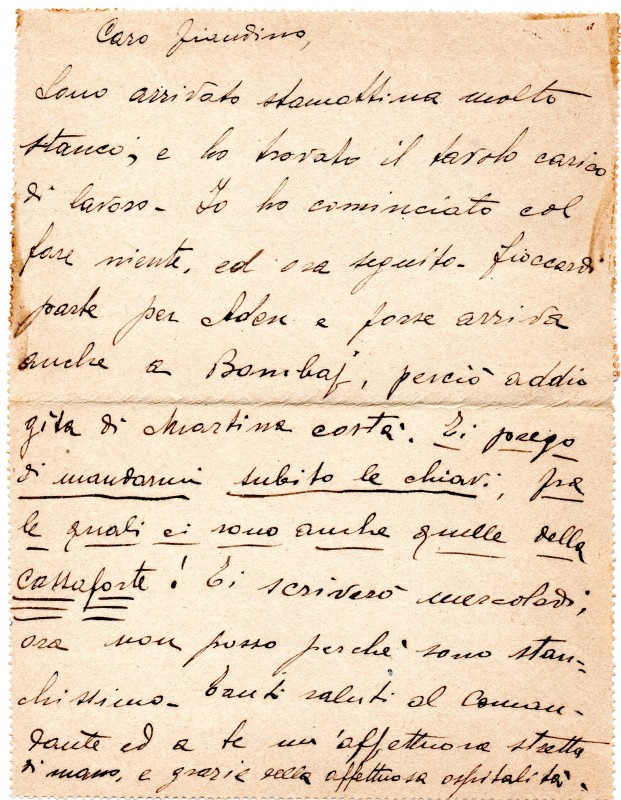 Caro Giandino,
Sono arrivato stamattina molto
stanco, e ho trovato il tavolo carico
di lavoro - Io ho cominciato col
fare niente, ed ora seguito - Fioccardi
parte per Aden e forse arriva
anche a Bombaj, perciò addio
gita di Martina costà. Ti prego
di mandarmi subito le chiavi, fra
le quali ci sono anche quelle della
cassaforte! Ti scriverò mercoledì,
ora non posso perchè sono stan-
chissimo - Tanti saluti al Coman-
dante ed a te un'affettuosa stretta
di mano, e grazie della affettuosa ospitalità.